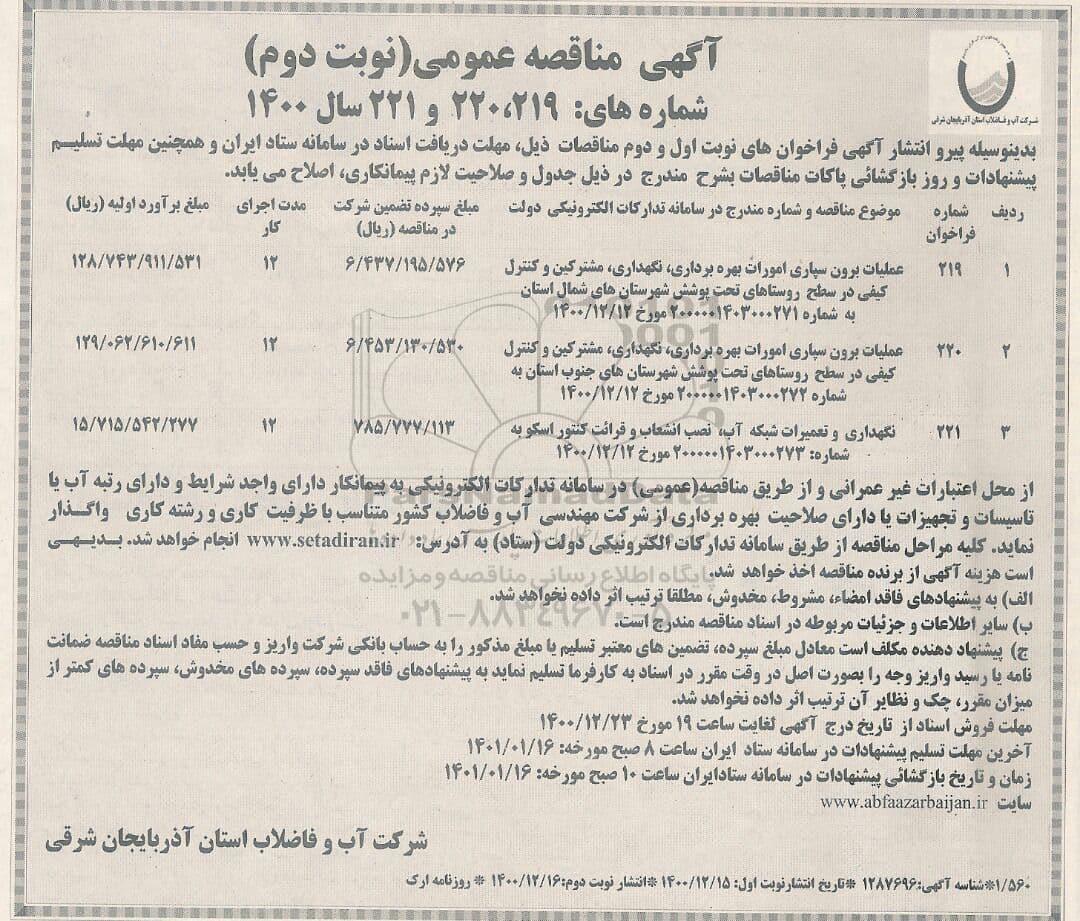 آگهی مناقصه عمومی(نوبت دوم)
شماره های: ۲۲۰،۲۱۹ و ۲۲۱ سال ۱۴۰۰
شرکت آب و فاضلاب استان آذربایجان شرقی
بدینوسیله پیرو انتشار آگهی فراخوان های نوبت اول و دوم مناقصات ذیل، مهلت دریافت اسناد در سامانه ستاد ایران و همچنین مهلت تسلیم
پیشنهادات و روز بازگشائی پاکات مناقصات بشرح مندرج در ذیل جدول و صلاحیت لازم پیمانکاری، اصلاح می یابد.
ردیف شماره فراخوان موضوع مناقصه و شماره مندرج در سامانه تدارکات الکترونیکی دولت مبلغ سپرده تضمین شرکت در مناقصه (ریال) مدت اجرای کار مبلغ برآورد اولیه (ریال)
۱ ۲۱۹ عملیات برون سپاری امورات بهره برداری، نگهداری، مشترکین و کنترل ۶/۴۳۷/۱۹۵/۵۷۶ ۱۲ ۱۲۸/۷۴۳/۹۱۱/۵۳۱
کیفی در سطح روستاهای تحت پوشش شهرستان های شمال استان
به شماره ۲۰۰۰۰۰۱۴۰۳۰۰۰۲۷۱ مورخ ۱۴۰۰/۱۲/۱۲
۲ ۲۲۰ عملیات برون سپاری امورات بهره برداری، نگهداری، مشترکین و کنترل ۶/۴۵۳/۱۳۰/۵۳۰ ۱۲ ۱۲۹/۰۶۲/۶۱۰/۶۱۱
کیفی در سطح روستاهای تحت پوشش شهرستان های جنوب استان به
شماره ۲۰۰۰۰۰۱۴۰۳۰۰۰۲۷۲ مورخ ۱۴۰۰/۱۲/۱۲
۳ ۲۲۱ نگهداری و تعمیرات شبکه آب، نصب انشعاب و قرائت کنتور اسکو به ۷۸۵/۷۷۷/۱۱۳ ۱۲ ۱۵/۷۱۵/۵۴۲/۲۷۷
شماره: ۲۰۰۰۰۰۱۴۰۳۰۰۰۲۷۳ مورخ ۱۴۰۰/۱۲/۱۲
از محل اعتبارات غیر عمرانی و از طریق مناقصه(عمومی) در سامانه تدارکات الکترونیکی به پیمانکار دارای واجد شرایط و دارای رتبه آب یا
تاسیسات و تجهیزات یا دارای صلاحیت بهره برداری از شرکت مهندسی آب و فاضلاب کشور متناسب با ظرفیت کاری و رشته کاری واگذار
نماید. کلیه مراحل مناقصه از طریق سامانه تدارکات الکترونیکی دولت (ستاد) به آدرس: www.setadiran.ir انجام خواهد شد. بدیهی
است هزینه آگهی از برنده مناقصه اخذ خواهد شد.
الف) به پیشنهادهای فاقد امضاء، مشروط، مخدوش، مطلقا ترتیب اثر داده نخواهد شد.
ب) سایر اطلاعات و جزئیات مربوطه در اسناد مناقصه مندرج است.
ج) پیشنهاد دهنده مکلف است معادل مبلغ سپرده، تضمین های معتبر تسلیم یا مبلغ مذکور را به حساب بانکی شرکت واریز و حسب مفاد اسناد مناقصه ضمانت
نامه یا رسید واریز وجه را بصورت اصل در وقت مقرر در اسناد به کارفرما تسلیم نماید به پیشنهادهای فاقد سپرده، سپرده های مخدوش، سپرده های کمتر از
میزان مقرر، چک و نظایر آن ترتیب اثر داده نخواهد شد.
مهلت فروش اسناد از تاریخ درج آگهی لغایت ساعت ۱۹ مورخ ۱۴۰۰/۱۲/۲۳
آخرین مهلت تسلیم پیشنهادات در سامانه ستاد ایران ساعت ۸ صبح مورخه: ۱۴۰۱/۰۱/۱۶
زمان و تاریخ بازگشائی پیشنهادات در سامانه ستادایران ساعت ۱۰ صبح مورخه: ۱۴۰۱/۰۱/۱۶
سایت www.abfaazarbaijan.ir
شرکت آب و فاضلاب استان آذربایجان شرقی
۱/۵۶۰*شناسه آگهی:۱۲۸۷۶۹۶ *تاریخ انتشارنوبت اول: ۱۴۰۰/۱۲/۱۵ *انتشار نوبت دوم:۱۴۰۰/۱۲/۱۶ * روزنامه ارک
پایگاه اطلاع رسانی مناقصه و مزایده